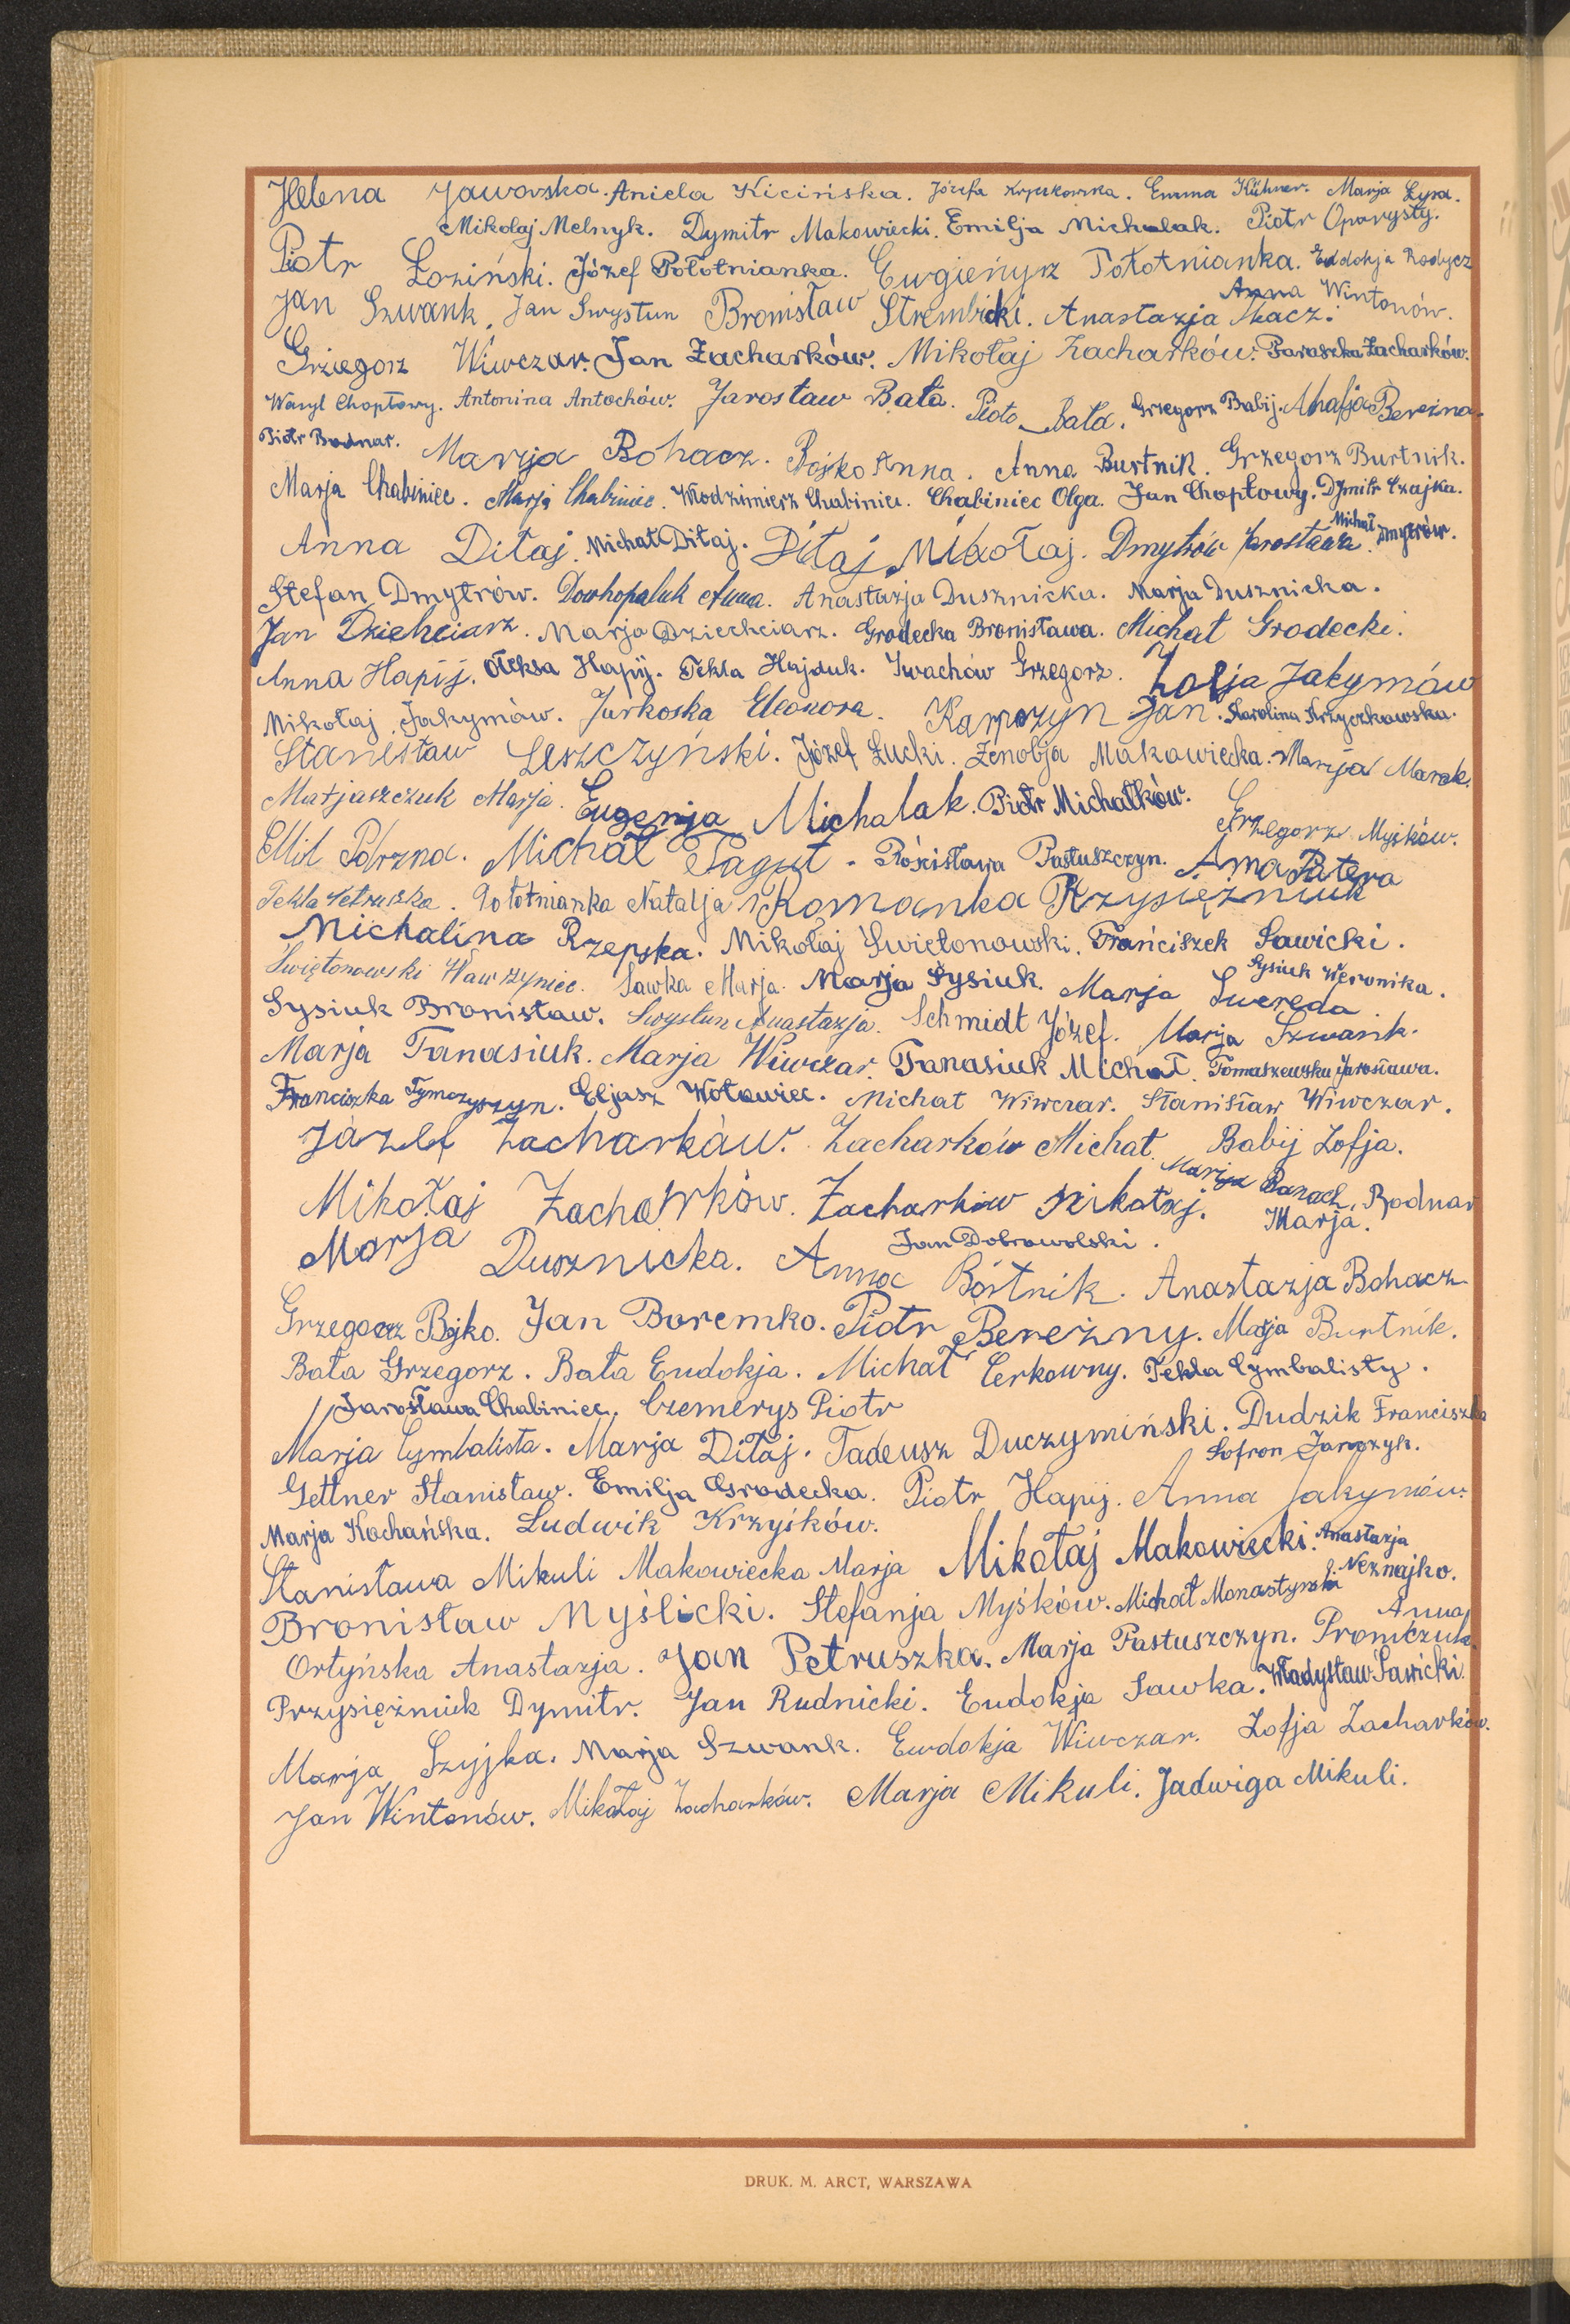 Helena Jaworska. Aniela Kicińska. Józefa Krzyczkowska. Emma Kühner. Marja Łysa.
Mikolaj Melnyk. Dymitr Makowiecki. Emilja Michalak. Piotr Oparysty.
Piotr Łoziński. Józef Połotnianka. Eugienjusz Połotnianka. Eudokja Radycz
Jan Szwank. Jan Swystun Bronisław Strembicki. Anastazja Tkacz. Anna Wintonów.
Grzegorz Wiwczar. Jan Zacharków. Mikołaj Zacharków. Paraszka Zacharków.
Wasyl Choptowy. Antonina Antochów. Jarosław Bata. Piotr Bata. Grzegorz Babij. Ahafja Bereżna.
Piotr Bodnar. Marja Bohacz. Bojko Anna. Anna Burtnik. Grzegorz Burtnik.
Marja Chabiniec. Marja Chabiniec. Włodzimierz Chabiniec. Chabiniec Olga. Jan Choptowy. Dymitr Czajka.
Anna Ditaj. Michał Ditaj. Ditaj Mikołaj. Dmytrów Jarosława. Michał Dmytrów.
Stefan Dmytrów. Dowhopaluk Anna. Anastazja Dusznicka. Marja Dusznicka.
Jan Dziekciarz. Marja Dziechciarz. Grodecka Bronisława. Michał Grodecki.
Anna Hapij. Ołeksa Hapij. Tekla Hajduk. Iwachów Grzegorz. Zofja Jakymów
Mikołaj Jakymów. Jurkoska Eleonora. Karposzyn Jan. Karolina Krzyczkowska.
Stanisław Leszczyński. Józef Łucki. Zenobja Makowiecka. Marija Marak.
Matjaszczuk Marja. Eugenja Michalak. Piotr Michałków. Grzegorz Myśków.
Emil Pobrzna. Michał Pagut. Rościsława Pastuszczyn. Anna Patera
Tekla Petruszka. Połotnianka Natalja Romanka Przysiężniuk
Michalina Rzepska. Mikołaj Swiętonowski. Franciszek Sawicki.
Swiętonowski Wawrzyniec. Sawka Marja. Marja Sysiuk. Marja Swereda Sysiuk Weronika.
Sysiuk Bronisław. Swystun Anastazja. Schmidt Józef. Marja Szwank.
Marja Tanasiuk. Marja Wiwczar. Tanasiuk Michał. Tomaszewska Jarosława.
Franciszka Tymczyszyn. Eljasz Wołowiec. Michał Wiwczar. Stanisław Wiwczar.
Józef Zacharków. Zacharków Michał. Babij Zofja.
Mikołaj Zacharków. Zacharków Mikołaj. Marija Banach. Bodnar Marja.
Marja Dusznicka. Jan Dobrowolski. Anna Bostnik. Anastazja Bohacz
Grzegorz Bojko. Jan Boremko. Piotr Bereżny. Marja Burtnik.
Bata Grzegorz. Bata Eudokja. Michał Cerkowny. Tekla Cymbalisty.
Jarosława Chabiniec. Czemerys Piotr
Marja Cymbalista. Marja Ditaj. Tadeusz Duczymiński. Dudzik Franciszka
Gettner Stanisław. Emilja Grodecka. Piotr Hapij. Anna Jakymów. Sofron Jarczyk.
Marja Kochańska. Ludwik Krzyśków.
Stanisława Mikuli Makowiecka Marja Mikołaj Makowiecki. Anastazja Neznajko.
Bronisław Myślicki. Stefanja Myśków. Michał Monastyrski
Ortyńska Anastazja. Jan Petruszka. Marja Pastuszczyn. Anna Promczuk.
Przysiężniuk Dymitr. Jan Rudnicki. Eudokja Sawka. Władysław Sawicki.
Marja Szyjka. Marja Szwank. Ewdokja Wiwczar. Zofja Zacharków.
Jan Wintonów. Mikołaj Zacharków. Marja Mikuli. Jadwiga Mikuli.
DRUK. M. ARCT, WARSZAWA